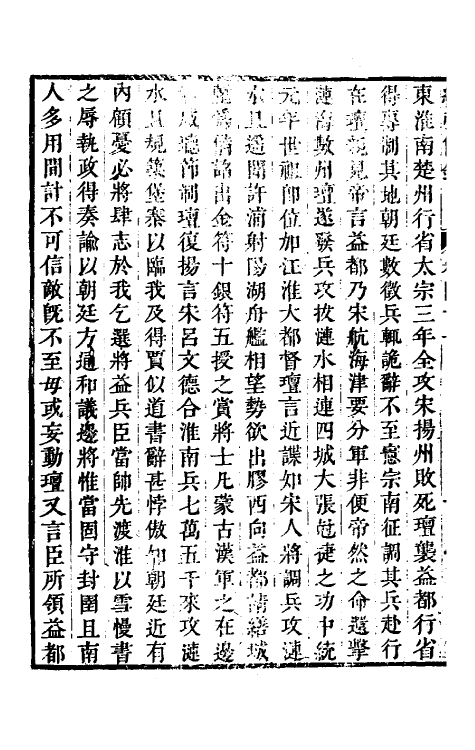 東淮南楚州行省太宗三年全攻宋揚州敗死璮襲益都行省
得專制其地朝廷數徵兵輒詭辭不至憲宗南征調其兵赴行
在璮親見帝言益都乃宋航海津要分軍非便帝然之命還擊
漣海數州璮遂發兵攻拔漣水相連四城大張尅捷之功中統
元年世祖即位加江淮大都督璮言近諜知宋人將調兵攻漣
水且逼聞許浦射陽湖舟艦相望勢欲出膠西向益都請繕城
塹爲備詔出金符十銀符五授之賞將士凡蒙古漢軍之在邊
者咸聽節制璮復揚言宋呂文德合淮南兵七萬五千來攻漣
水且規築堡寨以臨我及得賈似道書辭甚悖傲知朝廷近有
內顧憂必將肆志於我乞選將益兵臣當帥先渡淮以雪慢書
之辱執政得奏諭以朝廷方通和議邊將惟當固守封圉且南
人多用間計不可信敵旣不至毋或妄動璮又言臣所領益都